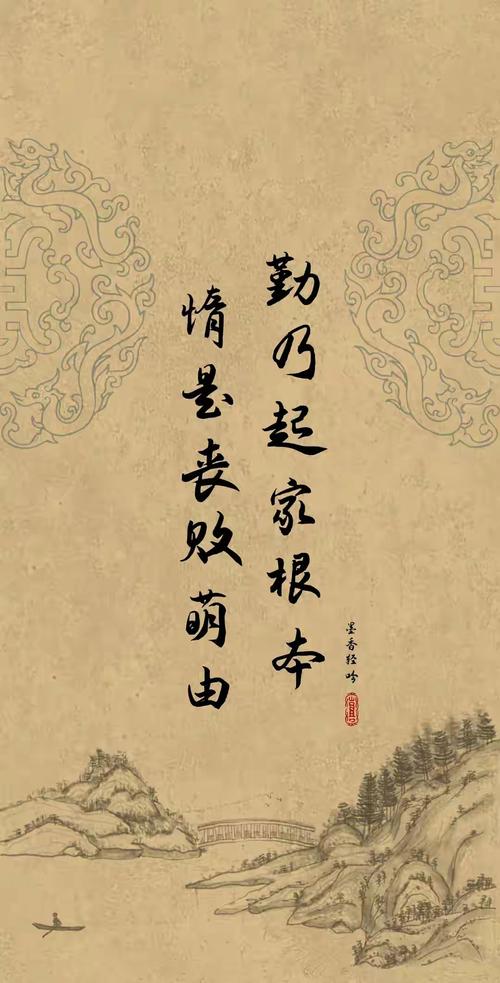 勤乃起家根本
惰是丧败萌由
墨香轻吟